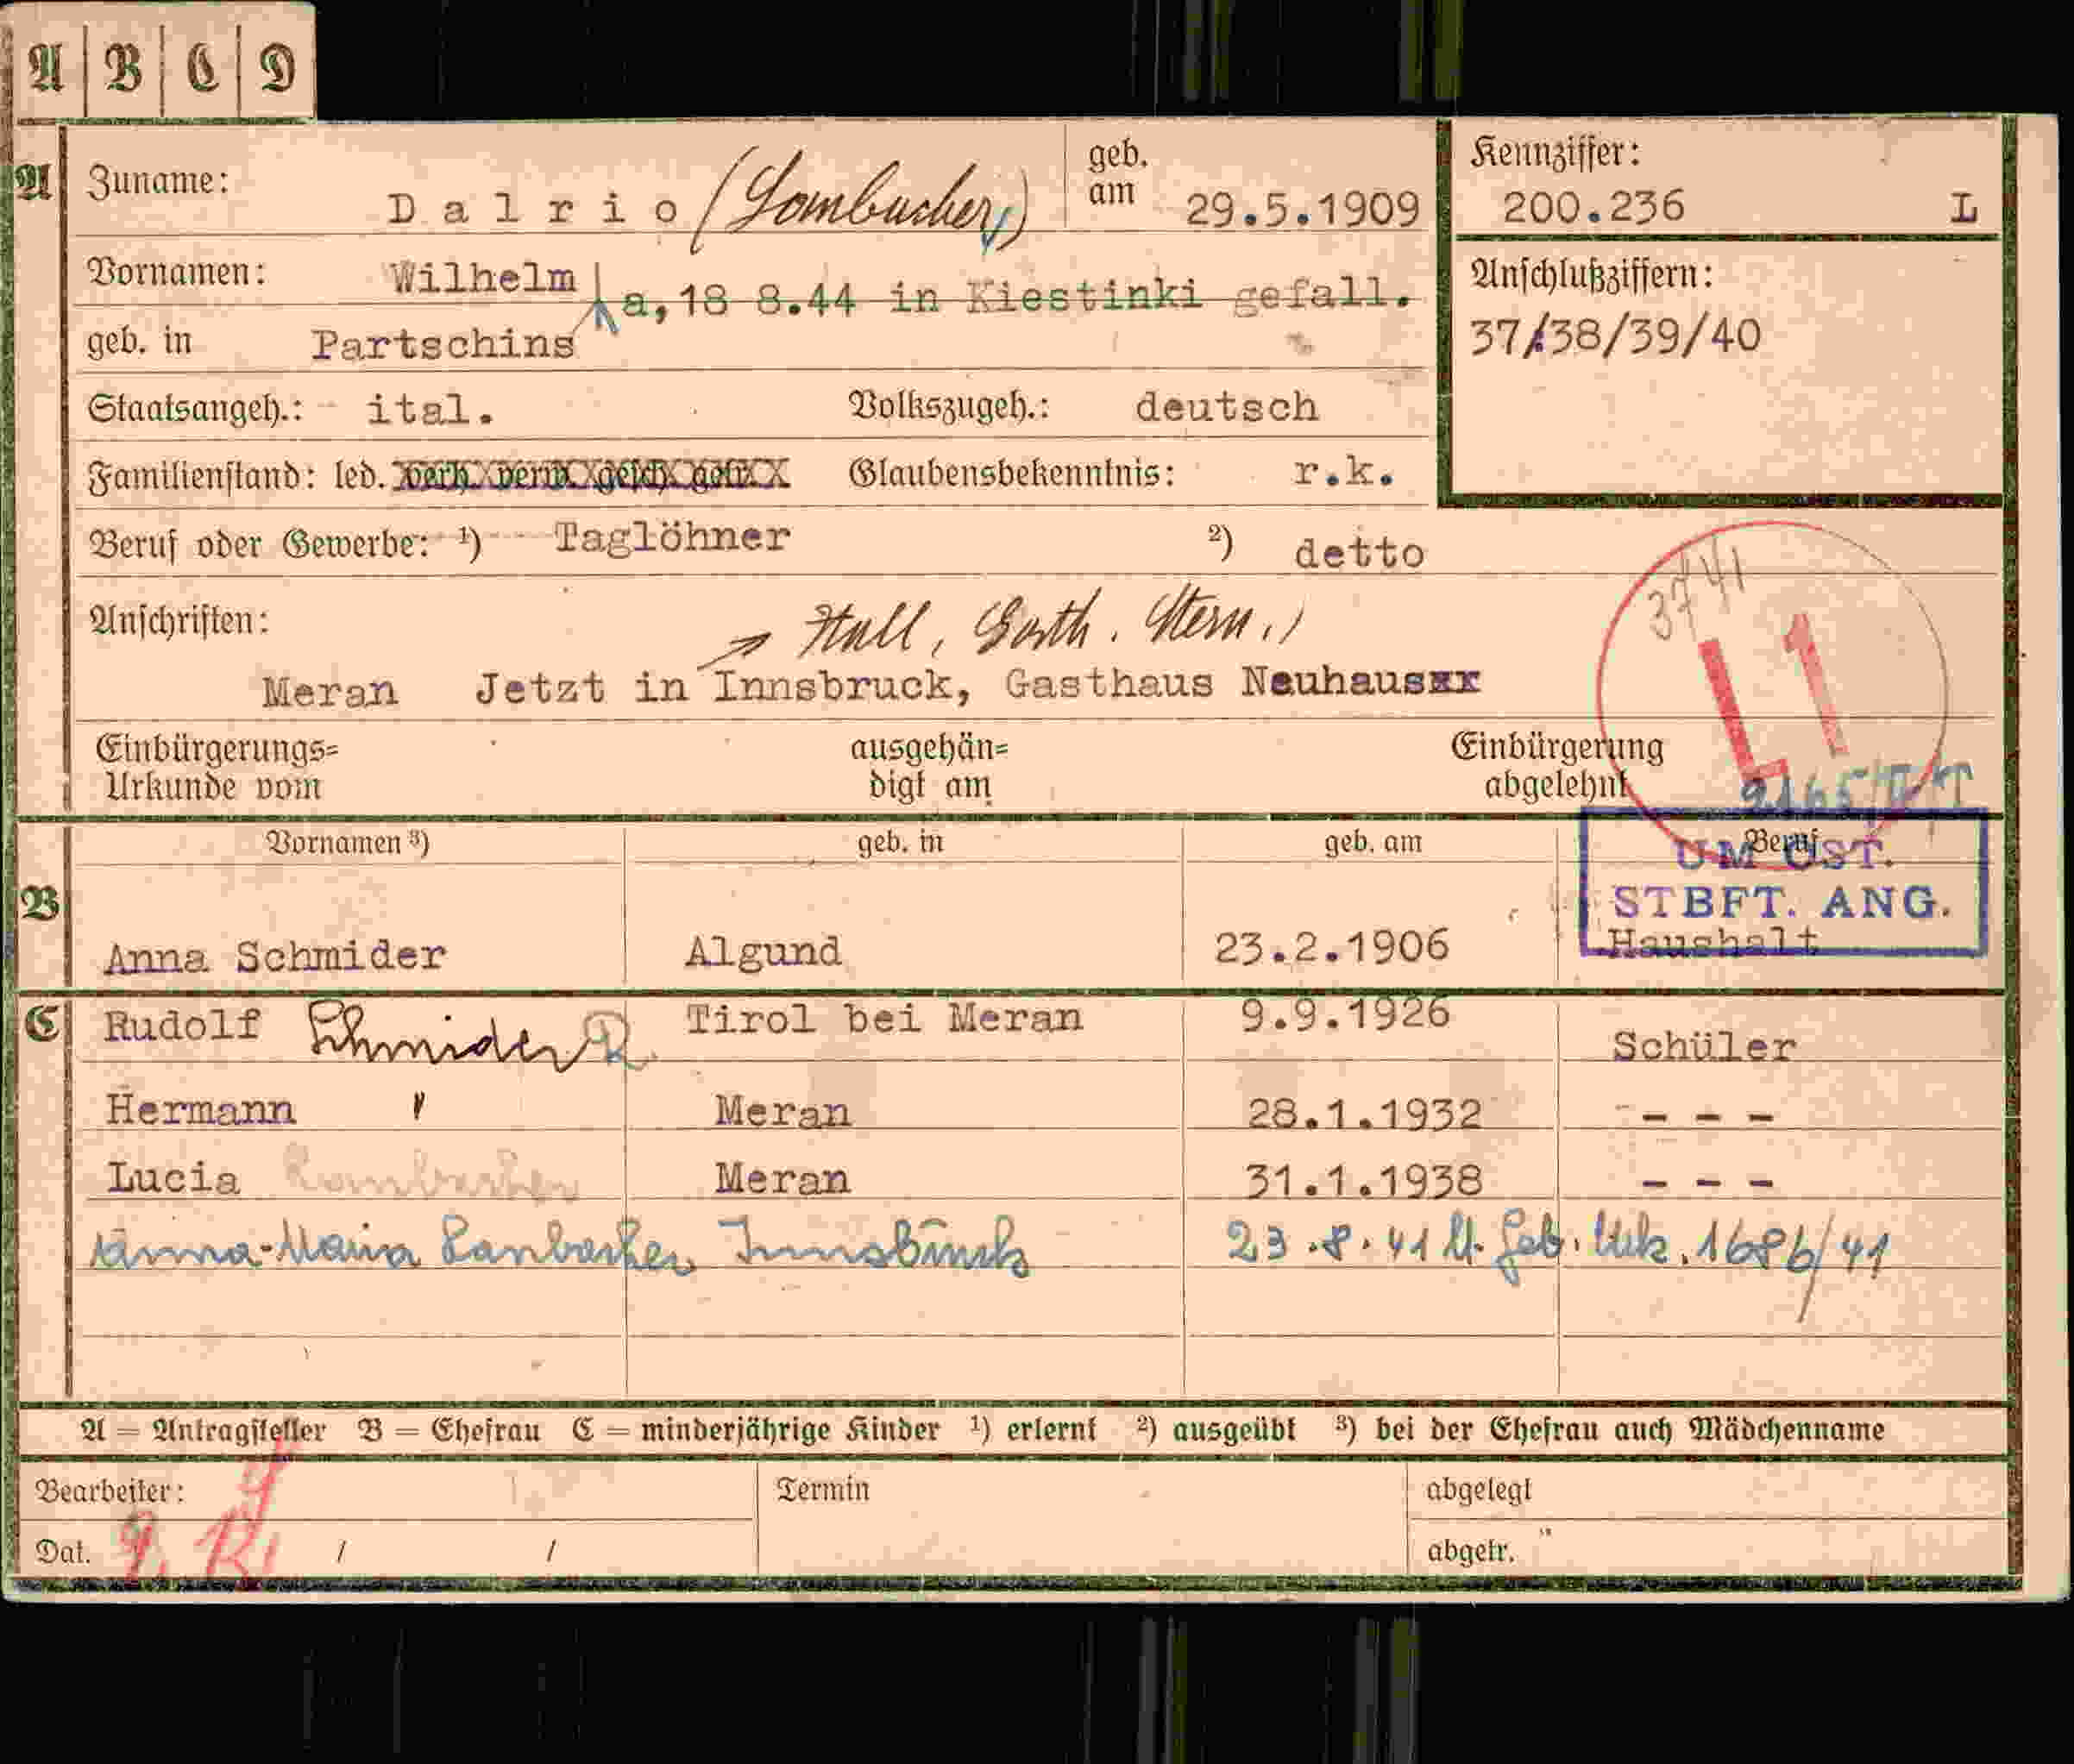 A B C D
A Zuname: Dalrio (Lambacher) geb. am 29.5.1909 Kennziffer: 200.236 L
Vornamen: Wilhelm a, 18 8.44 in Kiestinki gefall. Anschlußziffern:
geb. in Partschins 37/38/39/40
Staatsangeh.: ital. Volkszugeh.: deutsch
Familienstand: led. verh. verw. gesch. getr. Glaubensbekenntnis: r.k.
Beruf oder Gewerbe: ¹) Taglöhner ²) detto
3741
Anschriften: Hall, Gasth. Stern.)
L1
Meran Jetzt in Innsbruck, Gasthaus Neuhaus
Einbürgerungs= ausgehän= Einbürgerung
Urkunde vom digt am abgelehnt
Vornamen ³) geb. in geb. am Beruf
UM UST.
STBFT. ANG.
B Anna Schmider Algund 23.2.1906 Haushalt
C Rudolf Schmider Tirol bei Meran 9.9.1926 Schüler
Hermann " Meran 28.1.1932 - - -
Lucia Lambacher Meran 31.1.1938 - - -
Anna-Maria Lambacher Innsbruck 23.8.41 lt. Geb. Urk. 1686/41
A = Antragsteller B = Ehefrau C = minderjährige Kinder ¹) erlernt ²) ausgeübt ³) bei der Ehefrau auch Mädchenname
Bearbeiter: Termin abgelegt
Dat. / / abgetr.